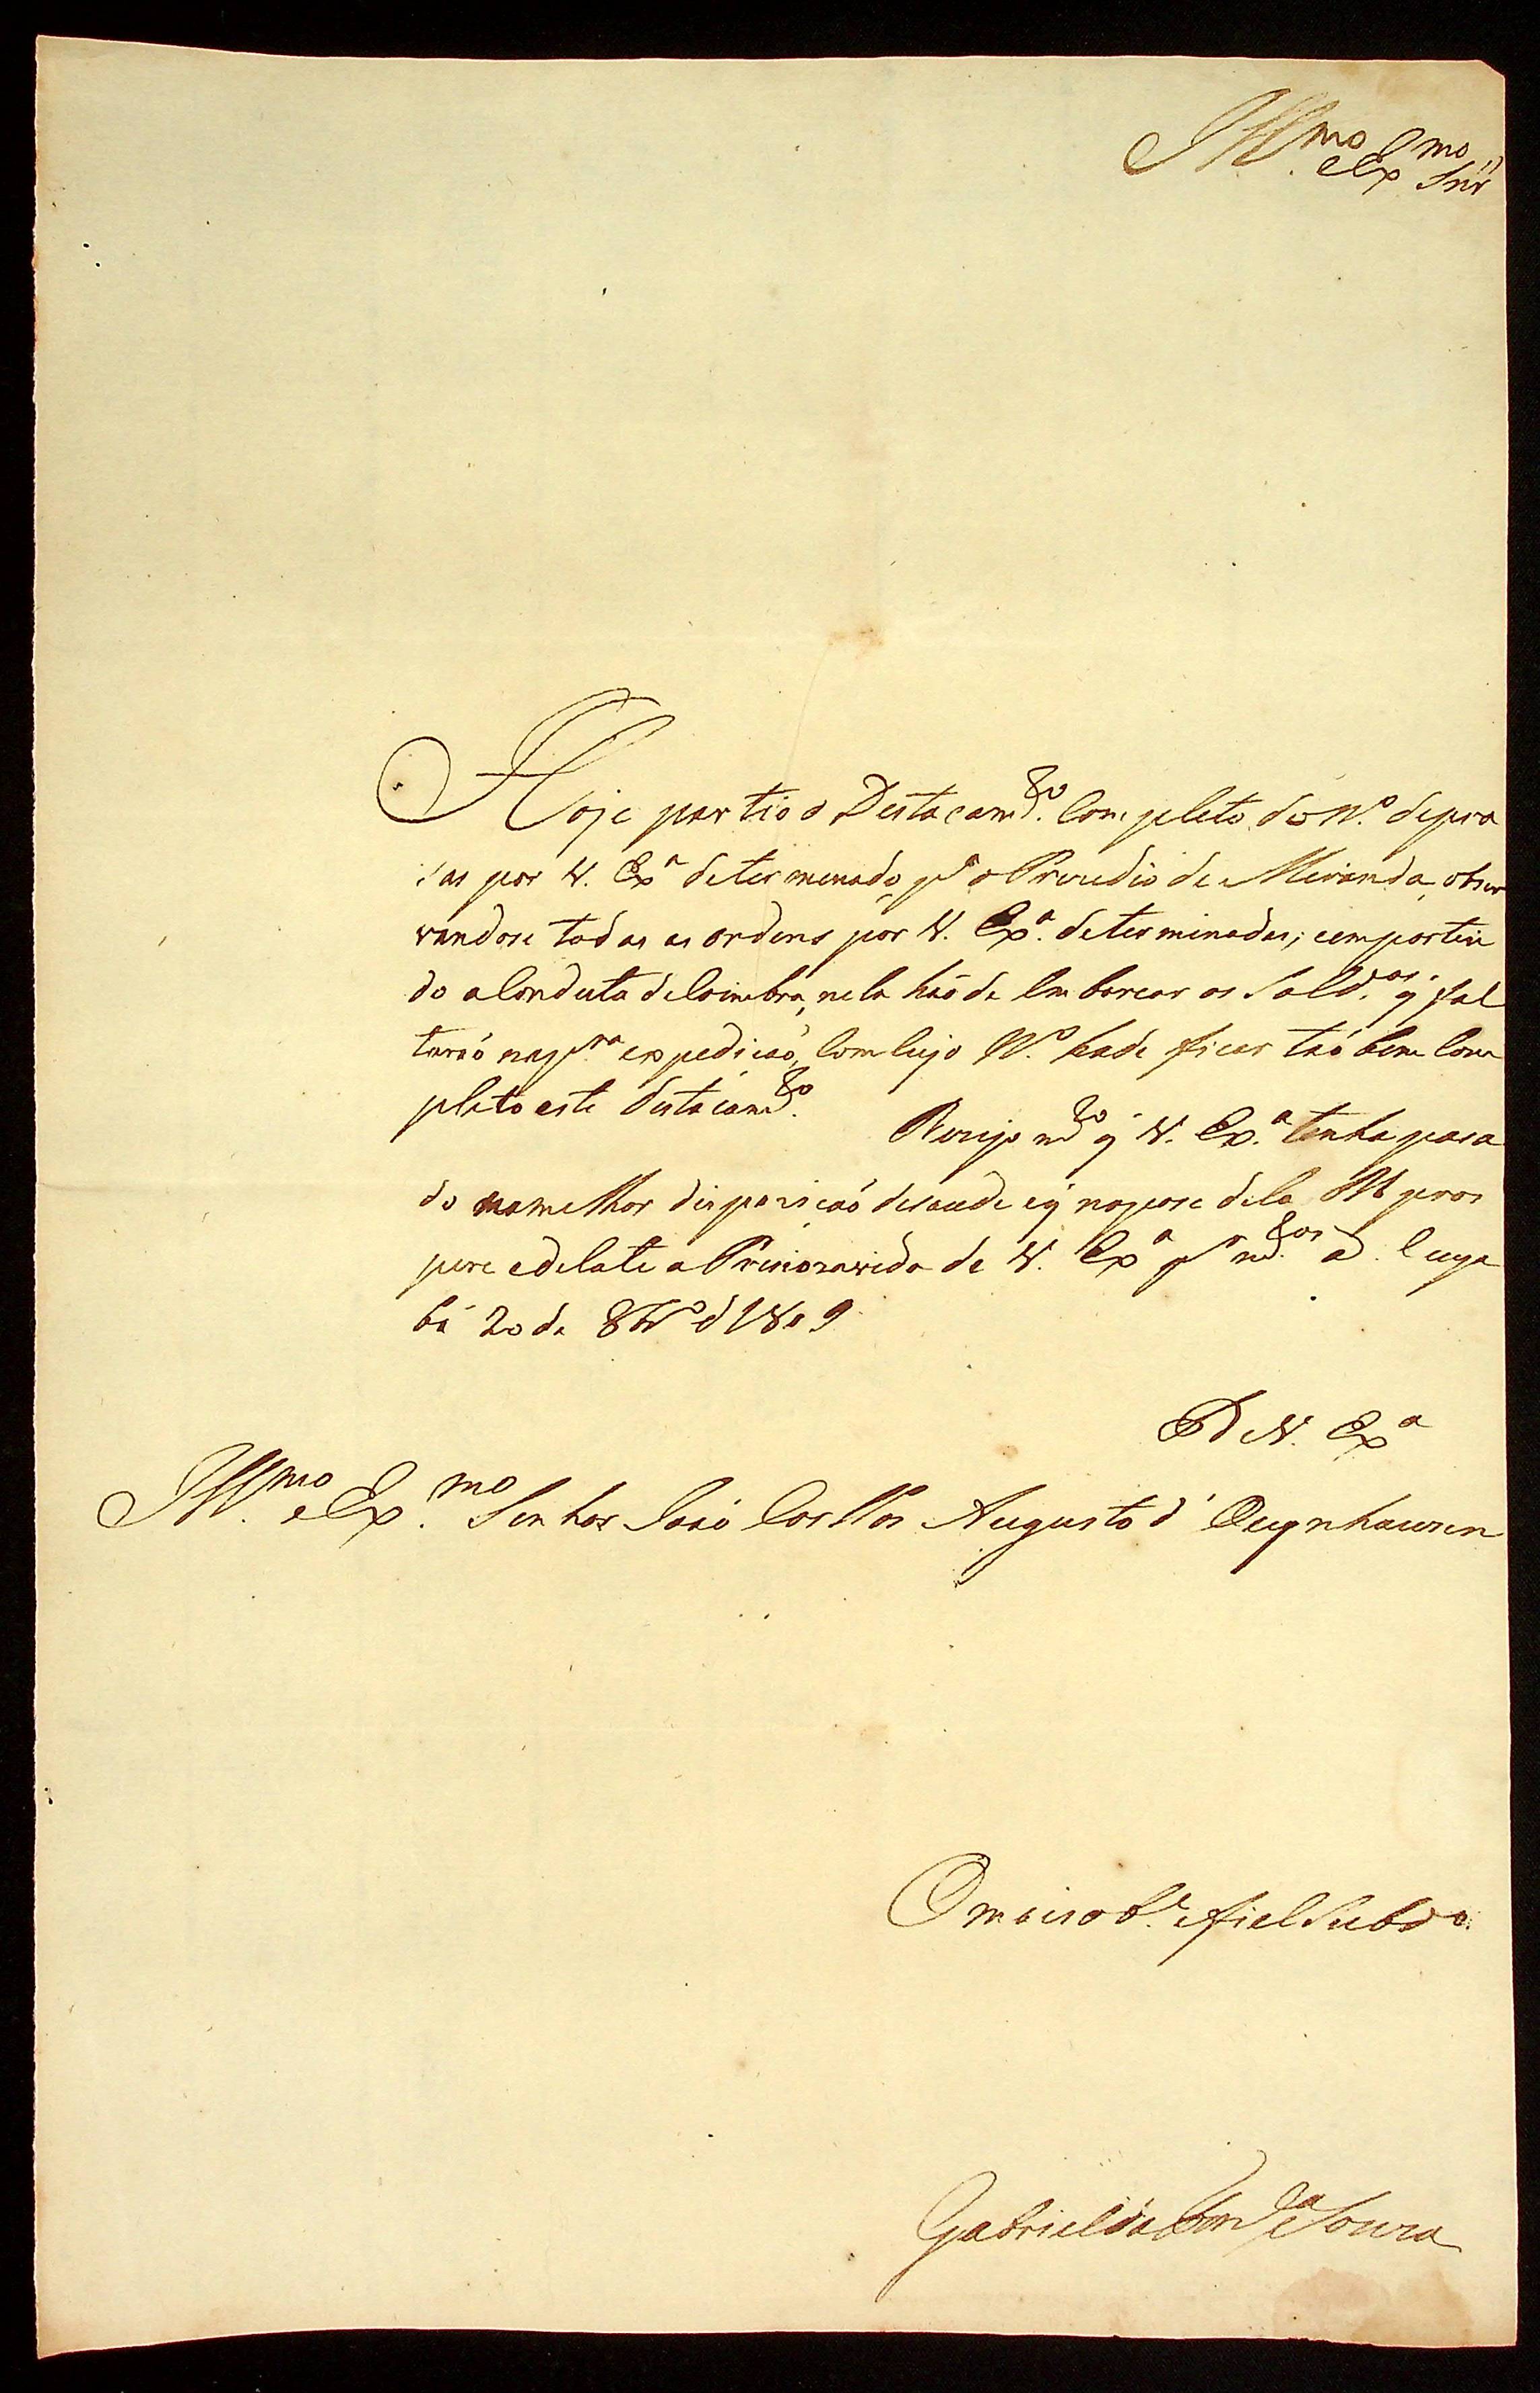 Ill.mo e Ex.mo Snr
Hoje partio o Destacam.to Completo do N.o de pra
sas por V. Ex.a determenado, p.a o Prezidio de Miranda, obser
vandose todas as ordens por V. Ex.a determinadas; e em partin
do a Conduta de Coimbra, nela háo de Embarcar os Sold.os q fal
taráo na p.ra expedicáo, Com Cujo N.o hade ficar táo bem Com
pleto este destacam.to
Dezejo m.to q V. Ex.a tenha pasa
do na melhor dispozicáo desaude e q na pose dela
pere e delate a Precioza vida de V. Ex.a p.r m.tos a. Cuya
bá 20 de 8br.o d 1809
D V. Ex.a
Ill.mo e Ex.mo Senhor Joáo Carllos Augusto d' Oeynhausen
O mais ob.e e fiel Subd.o
Gabriel da Fon.ca e Souza